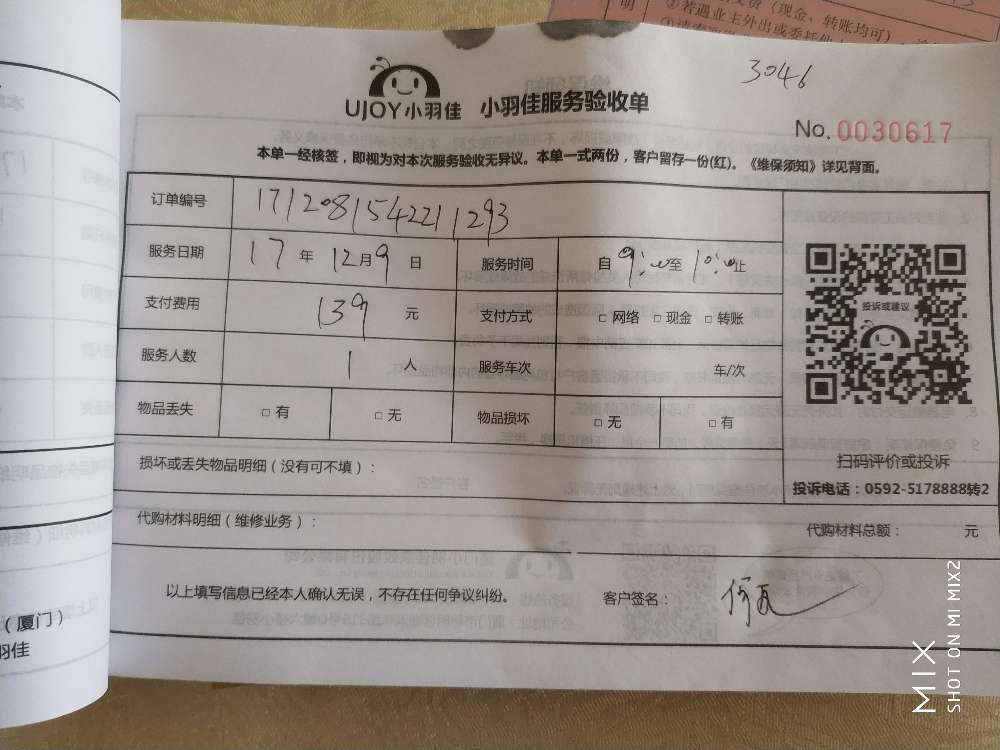 变费（现金、转账均可）
明
③若遇业主外出或委托他人
3046
UJOY小羽佳 小羽佳服务验收单
No. 0030617
本单一经核签，即视为对本次服务验收无异议。本单一式两份，客户留存一份(红)。《维保须知》详见背面。
订单编号 1712081542211293
服务日期 17 年 12 月 9 日 服务时间 自 9:00 至 10:00 止
支付费用 139 元 支付方式 □ 网络 □ 现金 □ 转账
服务人数 1 人 服务车次 车/次
物品丢失 □ 有 □ 无 物品损坏 □ 无 □ 有
投诉或建议
扫码评价或投诉
投诉电话：0592-5178888转2
损坏或丢失物品明细（没有可不填）：
代购材料明细（维修业务）： 代购材料总额： 元
以上填写信息已经本人确认无误，不存在任何争议纠纷。 客户签名：
（厦门）
羽佳
MIX
SHOT ON MI MIX2